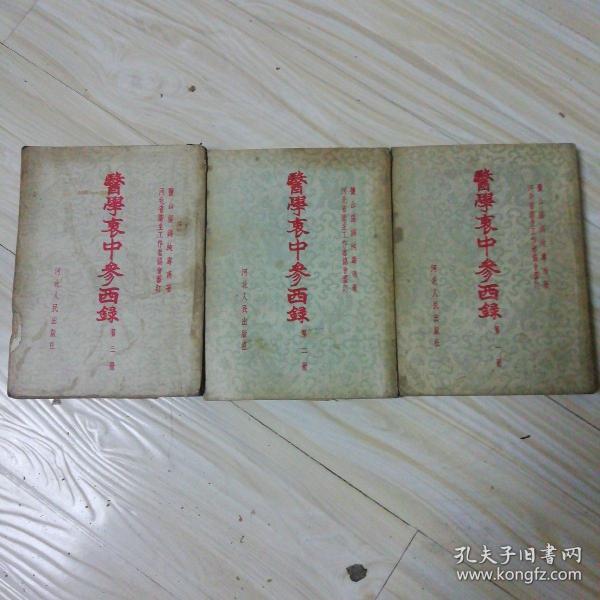 醫學衷中參西錄
第三冊
鹽山張錫純壽甫著
河北省衛生工作者協會審訂
河北人民出版社
醫學衷中參西錄
第二冊
鹽山張錫純壽甫著
河北省衛生工作者協會審訂
河北人民出版社
醫學衷中參西錄
第一冊
鹽山張錫純壽甫著
河北省衛生工作者協會審訂
河北人民出版社
孔夫子旧书网
www.kongfz.com